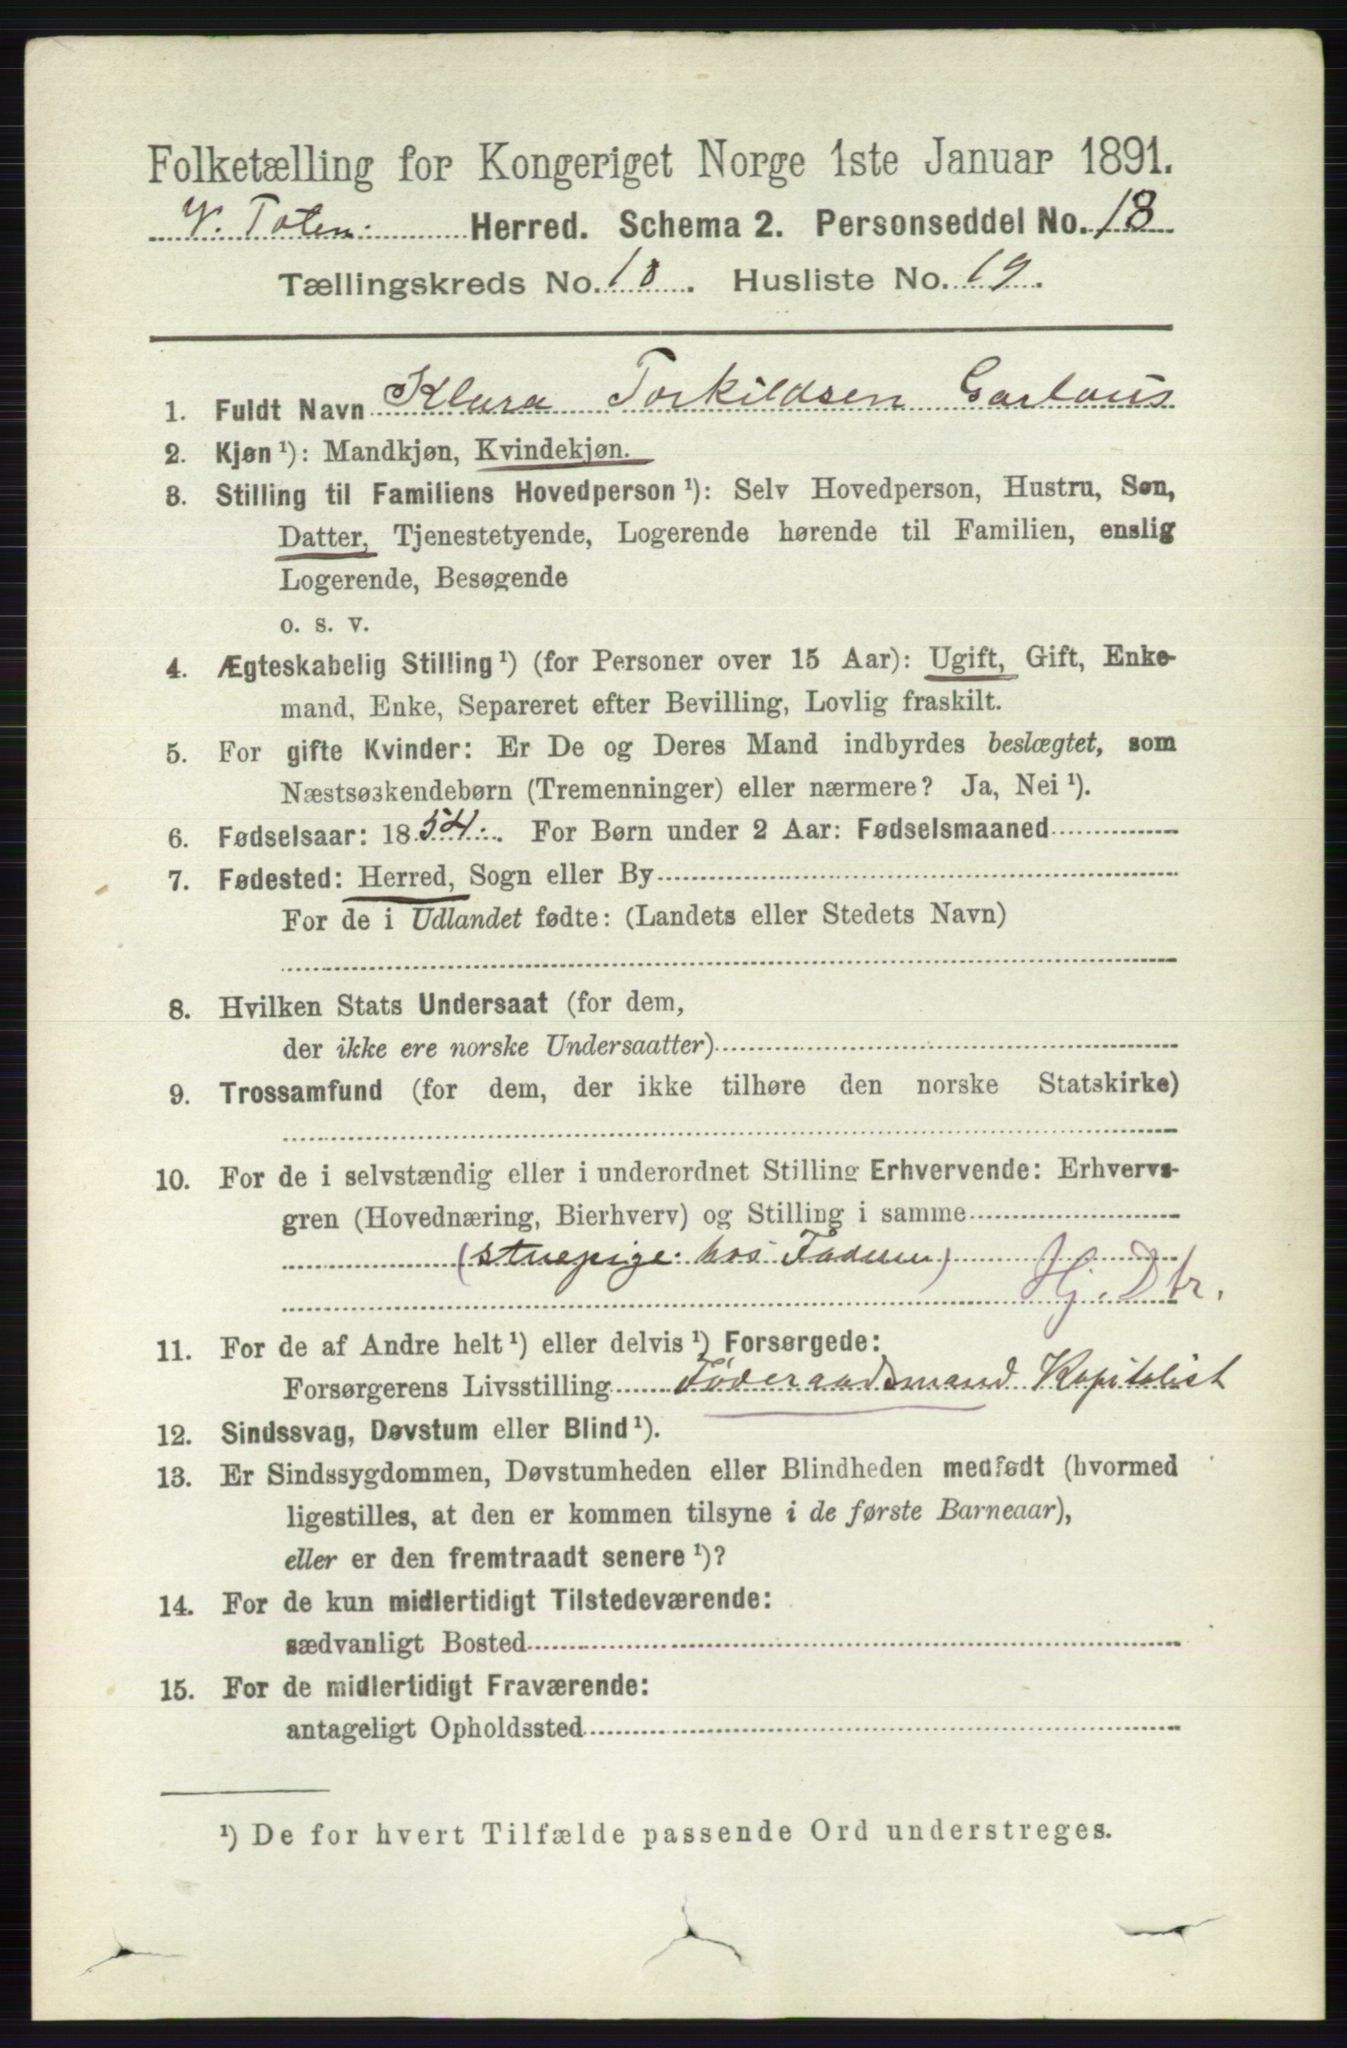 Folketælling for Kongeriget Norge 1ste Januar 1891.
V. Toten. Herred. Schema 2. Personseddel No. 18
Tællingskreds No. 18. Husliste No. 19.
1. Fuldt Navn Klara Torkildsen Garlaus
2. Kjøn ¹): Mandkjøn, Kvindekjøn.
3. Stilling til Familiens Hovedperson ¹): Selv Hovedperson, Hustru, Søn,
Datter, Tjenestetyende, Logerende hørende til Familien, enslig
Logerende, Besøgende
o. s. v.
4. Ægteskabelig Stilling ¹) (for Personer over 15 Aar): Ugift, Gift, Enke-
mand, Enke, Separeret efter Bevilling, Lovlig fraskilt.
5. For gifte Kvinder: Er De og Deres Mand indbyrdes beslægtet, som
Næstsøskendebørn (Tremenninger) eller nærmere? Ja, Nei ¹).
6. Fødselsaar: 1854. For Børn under 2 Aar: Fødselsmaaned
7. Fødested: Herred, Sogn eller By
For de i Udlandet fødte: (Landets eller Stedets Navn)
8. Hvilken Stats Undersaat (for dem,
der ikke ere norske Undersaatter)
9. Trossamfund (for dem, der ikke tilhøre den norske Statskirke)
10. For de i selvstændig eller i underordnet Stilling Erhvervende: Erhvervs-
gren (Hovednæring, Bierhverv) og Stilling i samme
(stuepige hos Faderen)
Hj. Dtr.
11. For de af Andre helt ¹) eller delvis ¹) Forsørgede:
Forsørgerens Livsstilling Føderaadsmand Kapitalist
12. Sindssvag, Døvstum eller Blind ¹).
13. Er Sindssygdommen, Døvstumheden eller Blindheden medfødt (hvormed
ligestilles, at den er kommen tilsyne i de første Barneaar),
eller er den fremtraadt senere ¹)?
14. For de kun midlertidigt Tilstedeværende:
sædvanligt Bosted
15. For de midlertidigt Fraværende:
antageligt Opholdssted
¹) De for hvert Tilfælde passende Ord understreges.